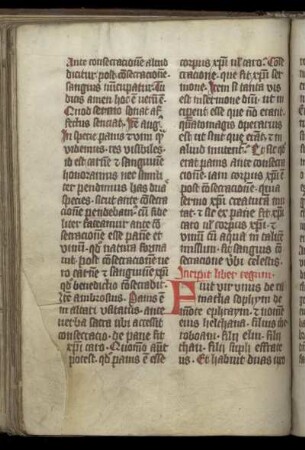 Ante consecracionē aliud
dicitur post cōsecracionē·
sanguis nūcupatur· Tu
dicis amen hoc ē verū ē·
Quod sonat
fectus senciat· Itē aug·
In specie panis ⁊ vini qͣ
videmus· res visibiles
id est carnē ⁊ sanguinē
honoramus nec simili
ter pendimus has duas
species· sicut ante cōse
cracionē pendebam· cū fide
liter fateamur ante cō
secracionē esse panē et
vinū· qd natura formā
uit· post cōsecracionē ve
ro carnē ⁊ sanguinē xpi
qd benedictio cōsecravit·
Itē ambrosius· Panis ē
in altari usitatus ante
verba sacra· ubi accessit
consecracio· de pane fit
xpi caro· Quomō autē
potest· qd panis ē esse
corpus xpi ul caro· Cōse
cracione· que fit xpi ser
mone· Item si tanta vis
est in sermone dni· ut in
ciperent esse que nō erant
quātomagis operarius
est ut sint que erāt· ⁊ in
aliud mutent·
erat panis ante consecra
cionem· iam corpus xpi ē
post cōsecracionē· quia
sermo xpi creaturā mu
tat· ⁊ sic ex pane fit xpi
caro ul corpus xpi· ⁊
vinū cū aqua in calicē
missum· fit sanguis cō
secracione vbi celestis·
Incipit liber regum·
Fuit vir unus de ra
matha sophym de
monte ephraym· ⁊ nomē
eius helchana· filius ihe
roboam· filii eliu· filii
thau· filii suph effrate
us· Et habuit duas uxo